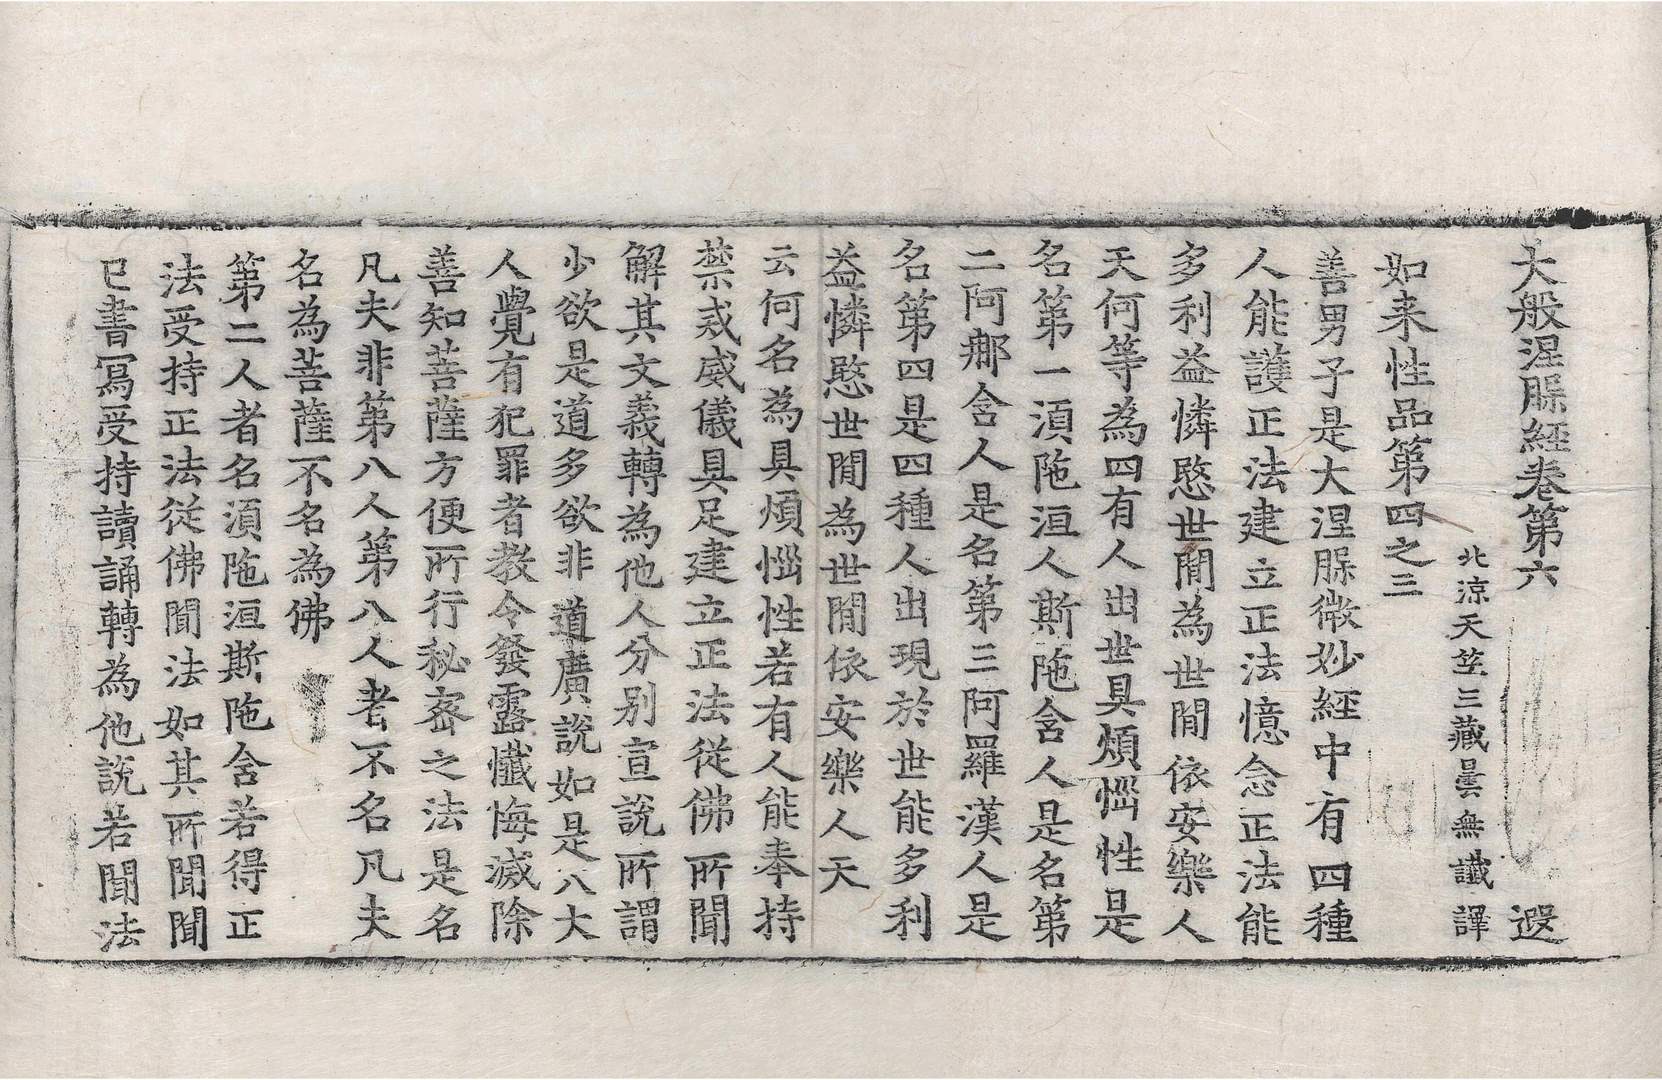 大般涅脲經卷第六 遐
北涼天竺三藏曇無讖 譯
如来性品第四之三
善男子是大涅脲微妙經中有四種
人能護正法建立正法憶念正法能
多利益憐愍世間為世間依安樂人
天何等為四有人出世具煩惱性是
名第一湏陁洹人斯陁含人是名第
二阿那含人是名第三阿羅漢人是
名第四是四種人出現於世能多利
益憐愍世間為世間依安樂人天
云何名為具煩惱性若有人能奉持
禁戒威儀具足建立正法從佛所聞
解其文義轉為他人分别宣說所謂
少欲是道多欲非道廣說如是八大
人覺有犯罪者教令發露懺悔滅除
善知菩薩方便所行秘密之法是名
凡夫非第八人第八人者不名凡夫
名為菩薩不名為佛
第二人者名湏陁洹斯陁含若得正
法受持正法從佛聞法如其所聞聞
已書寫受持讀誦轉為他說若聞法